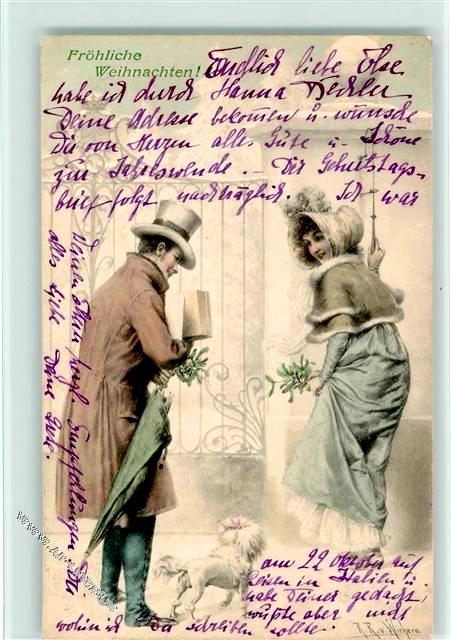 Fröhliche
Weihnachten!
Endlich liebe Else
habe ich durch Hanna
Deine Adresse bekommen u. wünsche
Dir von Herzen alles Gute u. Schöne
zur Jahreswende. - Der Geburtstags-
brief folgt nachträglich. Ich war
am 22 Oktober auf
Reisen in Italien u.
habe Deiner gedacht,
wußte aber nicht
wohin ich Dir schreiben sollte.
Deinen Eltern herzl. Empfehlungen. Dir
alles Liebe Deine
R. R. v. Wichera
www.ansichtskartenversand.com